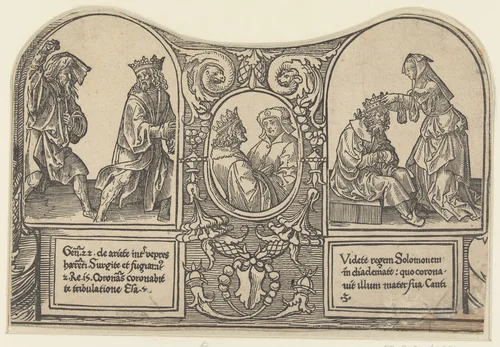 Gen. 22. de ariete inter vepres
herenti Surgite et fugiamus
2. Re. 15. Coronas coronabit
te tribulatione Esa.
Videte regem Solomonem
in diademate: quo corona-
uit illum mater sua. Canti
3.